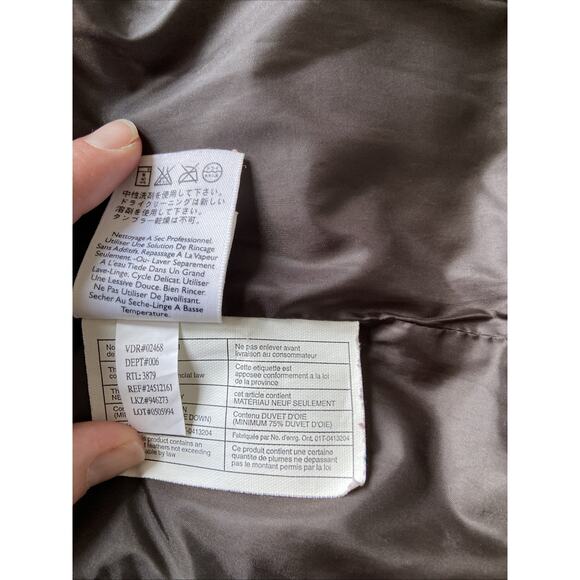 中性洗剤を使用して下さい。
ドライクリーニングは新しい
溶剤を使用して下さい。
タンブラー乾燥は不可。
Nettoyage A Sec Professionnel.
Utiliser Une Solution De Rincage
Sans Additifs. Repassage A La Vapeur
Seulement. -Ou- Laver Separement
A L'eau Tiede Dans Un Grand
Lave-Linge, Cycle Delicat. Utiliser
Une Lessive Douce. Bien Rincer.
Ne Pas Utiliser De Javellisant.
Secher Au Seche-Linge A Basse
Temperature.
VDR#02468
DEPT#006
RTL: 3879
REF#24512161
LKZ#946273
LOT#0505994
No
Ne pas enlever avant
livraison au consommateur
Th
ncial law
Cette étiquette est
apposée conformément a la loi
de la province
Th
Y
cet article contient
MATÉRIAU NEUF SEULEMENT
Co
(MI
E DOWN)
Contenu DUVET D'OIE
(MINIMUM 75% DUVET D'OIE)
-0413204
Fabriquée par No. d'enrg. Ont. 01T-0413204
s product contains an
t feathers not exceeding
able by law
Ce produit contient une certaine
quantité de plumes ne depassant
pas le montant permis par la loi